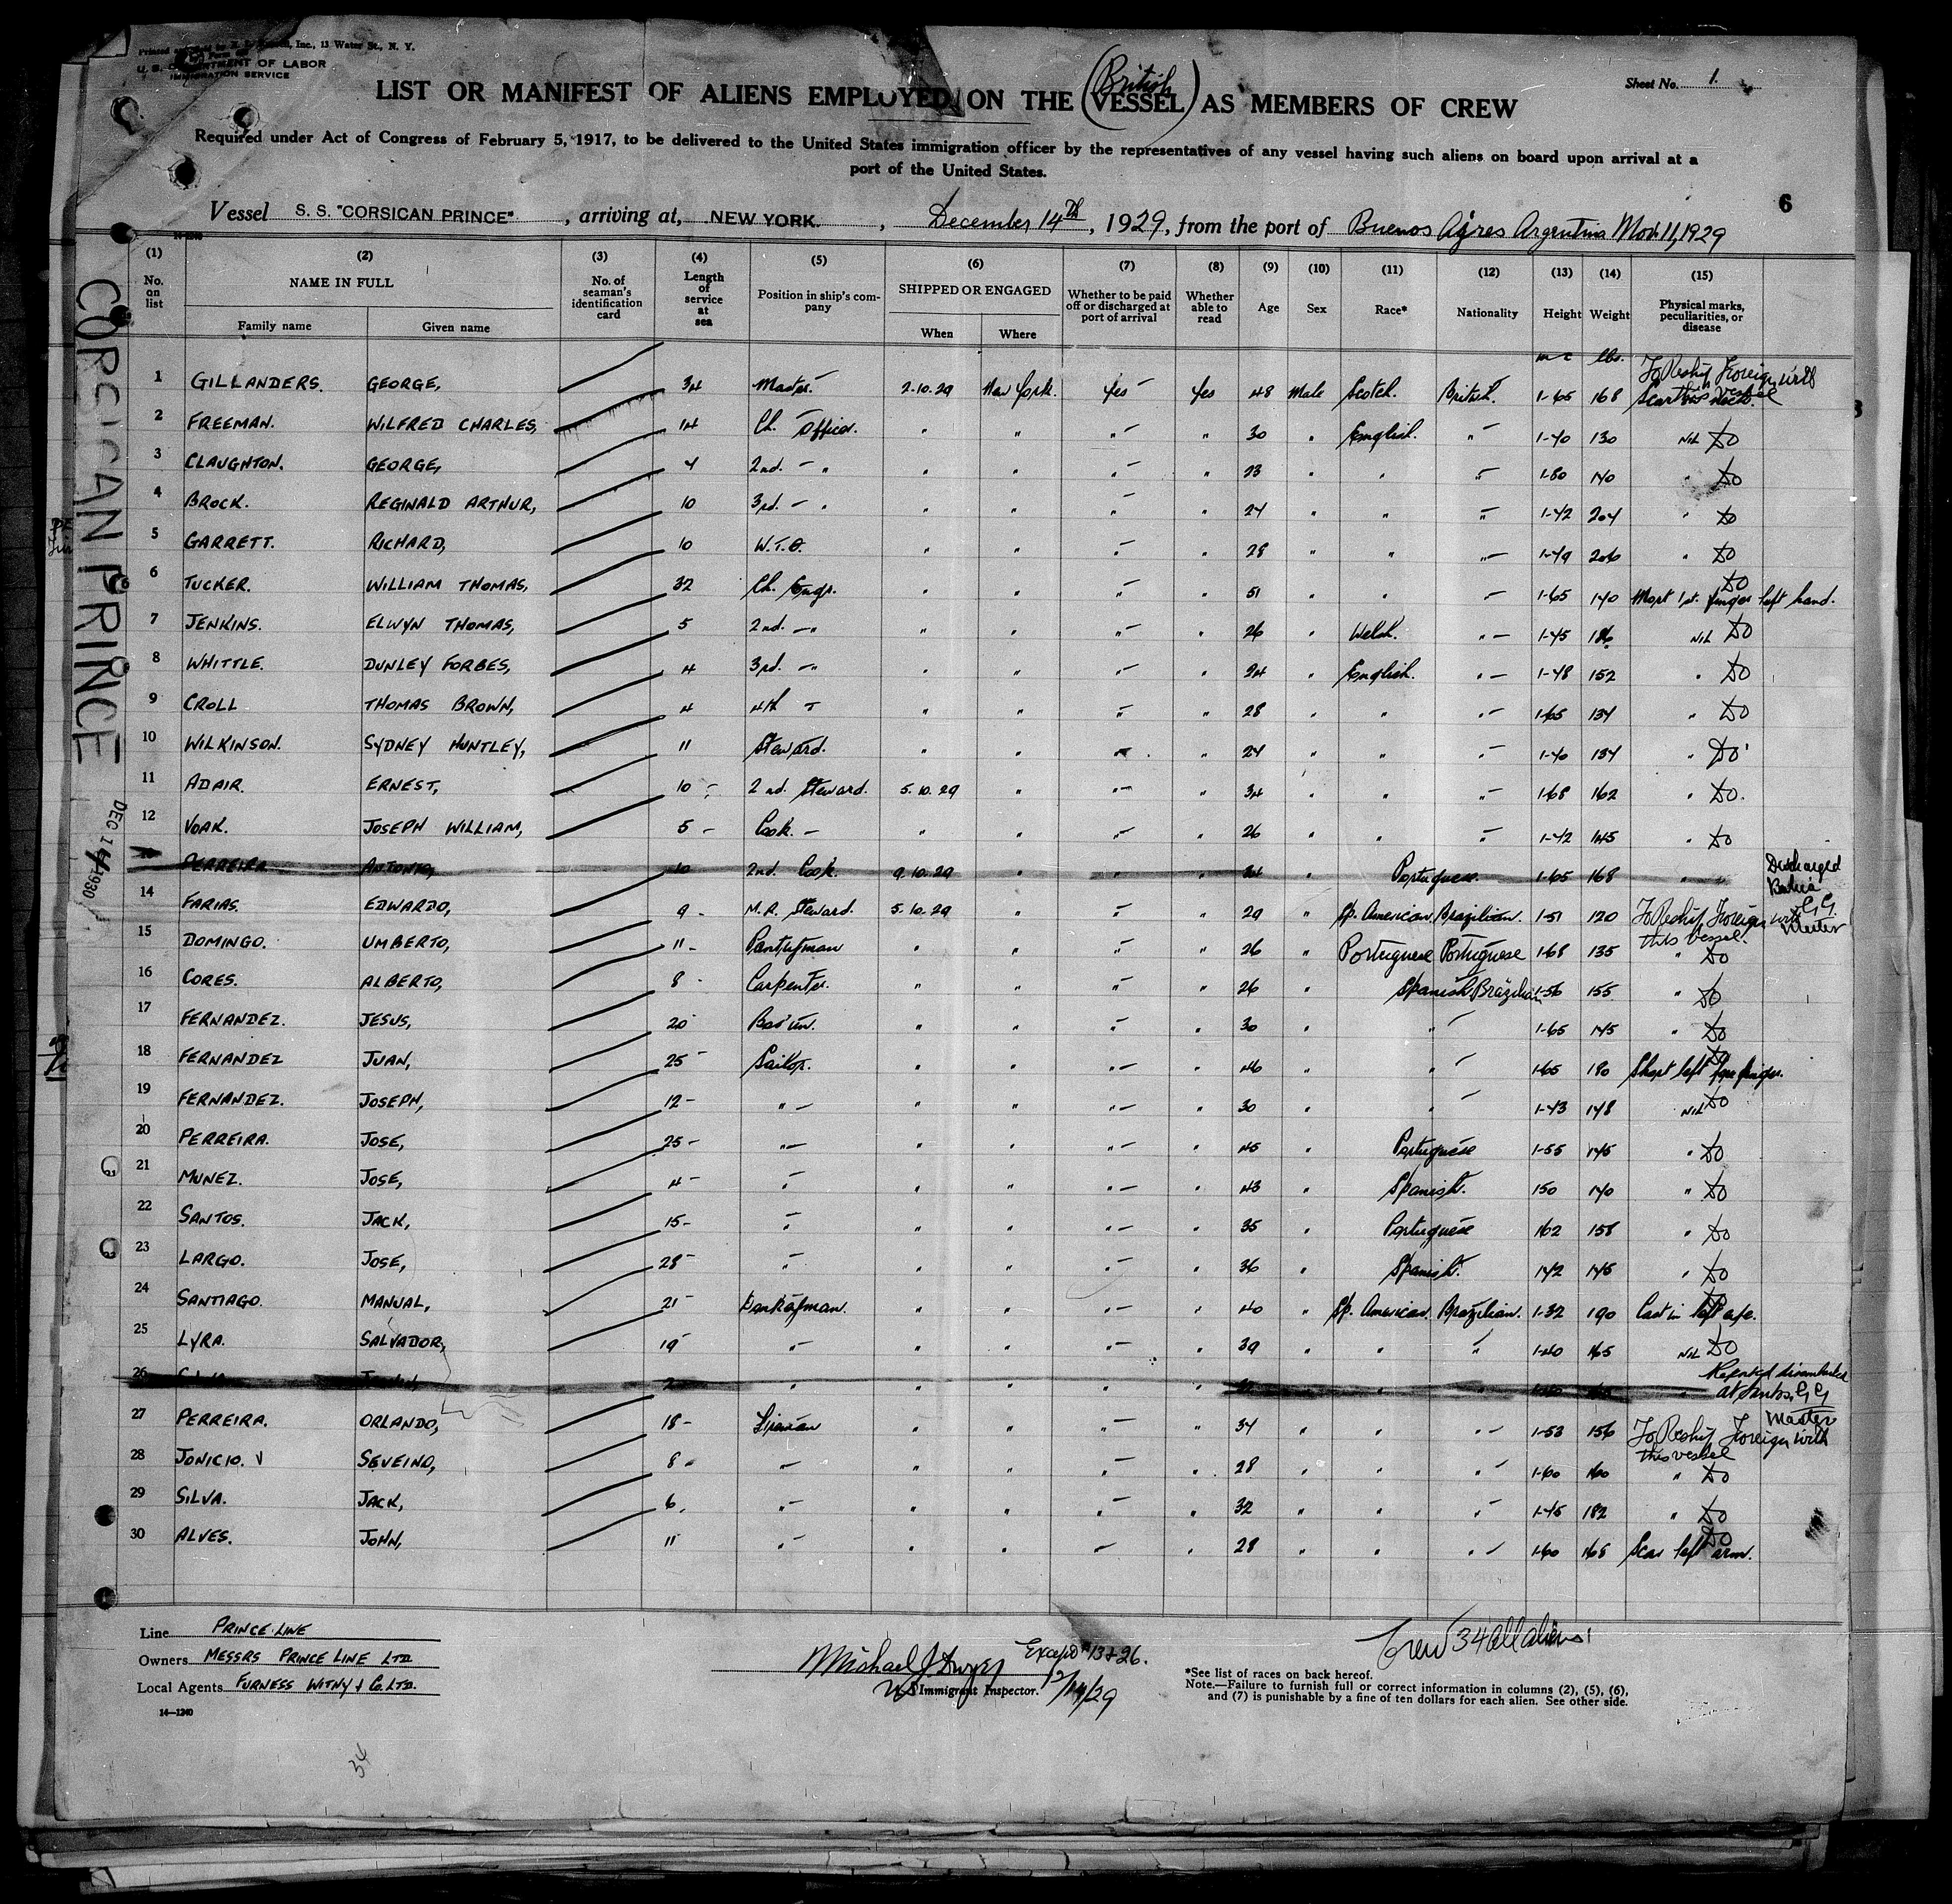 Printed and sold by Inc., 13 Water St., N. Y.
U. S. DEPARTMENT OF LABOR
IMMIGRATION SERVICE
Sheet No. 1.
LIST OR MANIFEST OF ALIENS EMPLOYED ON THE (British VESSEL) AS MEMBERS OF CREW
Required under Act of Congress of February 5, 1917, to be delivered to the United States immigration officer by the representatives of any vessel having such aliens on board upon arrival at a
port of the United States.
6
Vessel S. S. "CORSICAN PRINCE", arriving at, NEW YORK. , December 14th, 1929, from the port of Buenos Aires Argentina Nov. 11, 1929
(1) No. on list (2) NAME IN FULL Family name Given name (3) No. of seaman's identification card (4) Length of service at sea (5) Position in ship's company (6) SHIPPED OR ENGAGED When Where (7) Whether to be paid off or discharged at port of arrival (8) Whether able to read (9) Age (10) Sex (11) Race* (12) Nationality (13) Height (14) Weight (15) Physical marks, peculiarities, or disease
lbs.
1 GILLANDERS. GEORGE, 34 Master 2.10.29 New York. Yes Yes 48 Male Scotch. British. 1-65 168 To Reship Foreign with this Vessel
2 FREEMAN. WILFRED CHARLES, 14 Ch. Officer. " " " " 30 " English. " 1-40 130 NIL Do
3 CLAUGHTON. GEORGE, 4 2nd. " " " " " 23 " " " 1-80 140 " Do
4 BROCK. REGINALD ARTHUR, 10 3rd. " " " " " 24 " " " 1-42 204 " Do
5 GARRETT. RICHARD, 10 W.T.O. " " " " 28 " " " 1-49 206 " Do
6 TUCKER. WILLIAM THOMAS, 32 Ch. Engr. " " " " 51 " " " 1-65 140 Do 1st. finger left hand.
7 JENKINS. ELWYN THOMAS, 5 2nd. " " " " " 26 " Welsh. " 1-45 186 NIL Do
8 WHITTLE. DUNLEY FORBES, 4 3rd. " " " " " 24 " English. " 1-48 152 " Do
9 CROLL THOMAS BROWN, 4 4th " " " " 28 " " " 1-65 134 " Do
10 WILKINSON. SYDNEY HUNTLEY, 11 Steward. " " " " 24 " " " 1-40 134 " Do
11 ADAIR. ERNEST, 10 2nd. Steward. 5.10.29 " " " 34 " " " 1-68 162 " Do.
12 VOAK. JOSEPH WILLIAM, 5 Cook. " " " " 26 " " " 1-42 145 " Do
PERREIRA ANTONIO, 10 2nd. Cook. 9.10.29 " " " 34 Portuguese. 1-65 168 " " Discharged Bahia G.G. Master
14 FARIAS. EDWARDO, 9 M.R. Steward. 5.10.29 " " " 29 " Sp. American. Brazilian. 1-51 120 To Reship Foreign with this Vessel.
15 DOMINGO. UMBERTO, 11 Pantryman " " " " 26 " Portuguese Portuguese 1-68 135 " Do
16 CORES. ALBERTO, 8 Carpenter. " " " " 26 " Spanish Brazilian 1-56 155 " Do
17 FERNANDEZ. JESUS, 20 Bos'un. " " " " 30 " " 1-65 145 " Do
18 FERNANDEZ JUAN, 25 Sailor. " " " " 46 " " 1-65 180 Do Short left fore finger.
19 FERNANDEZ. JOSEPH, 12 " " " " " 30 " " 1-43 148 NIL Do
20 PERREIRA. JOSE, 25 " " " " " 45 " Portuguese 1-55 145 " Do
21 MUNEZ. JOSE, 4 " " " " " 43 " Spanish. 150 140 " Do
22 SANTOS. JACK, 15 " " " " " 35 " Portuguese 162 158 " Do
23 LARGO. JOSE, 28 " " " " " 36 " Spanish. 142 145 " Do
24 SANTIAGO. MANUAL, 21 Donkeyman. " " " " 40 " Sp. American. Brazilian. 1-32 190 Do Cast in left eye.
25 LYRA. SALVADOR, 19 " " " " " 39 " " " 1-40 165 NIL Do
26 " " " " " " at Santos G G Master
27 PERREIRA. ORLANDO, 18 Fireman " " " " 34 " " " 1-53 156 To Reship Foreign with this vessel
28 JONICIO. V SEVEINO, 8 " " " " " 28 " " " 1-60 160 " Do
29 SILVA. JACK, 6 " " " " " 32 " " " 1-45 182 " Do
30 ALVES. JOHN, 11 " " " " " 28 " " " 1-60 168 Do Scar left arm.
CORSICAN PRINCE
DEC 14 1930
Line PRINCE LINE
Owners MESSRS PRINCE LINE LTD
Local Agents FURNESS WITHY & Co. LTD.
14—1240
Michael J Dwyer Except # 13 + 26.
US Immigrant Inspector. 12/14/29
Crew 34 all aliens
*See list of races on back hereof.
Note.—Failure to furnish full or correct information in columns (2), (5), (6),
and (7) is punishable by a fine of ten dollars for each alien. See other side.
34